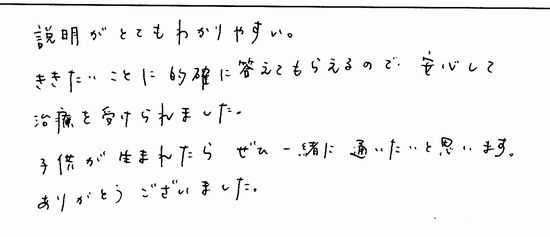 説明がとてもわかりやすい。
ききたいことに的確に答えてもらえるので、安心して
治療を受けられました。
子供が生まれたら ぜひ 一緒に 通いたいと思います。
ありがとう ございました。